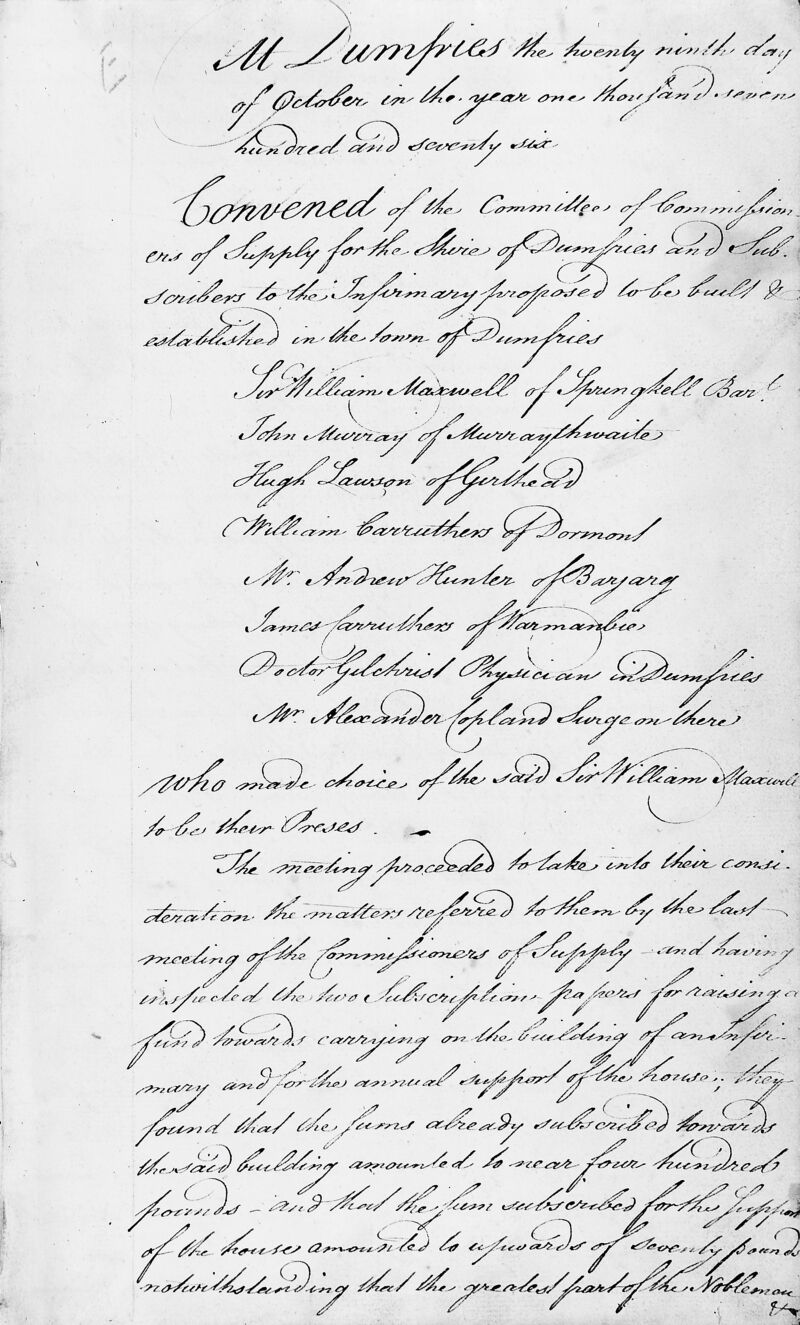 At Dumfries the twenty ninth day
of October in the year one thousand seven
hundred and seventy six
Convened of the Committee of Commission
ers of Supply for the Shire of Dumfries and Sub-
scribers to the Infirmary proposed to be built &
established in the town of Dumfries
Sir William Maxwell of Springkell Bart.
John Murray of Murraythwaite
Hugh Lawson of Girthead
William Carruthers of Dormont
Mr. Andrew Hunter of Barjarg
James Carruthers of Warmanbie
Doctor Gilchrist Physician in Dumfries
Mr. Alexander Copland Surgeon there
who made choice of the said Sir William Maxwell
to be their Preses.
The meeting proceeded to take into their consi-
deration the matters referred to them by the last
meeting of the Commissioners of Supply - and having
inspected the two Subscription papers for raising a
fund towards carrying on the building of an Infir-
mary and for the annual support of the house; they
found that the sums already subscribed towards
the said building amounted to near four hundred
pounds - and that the sum subscribed for the Support
of the house amounted to upwards of seventy pounds
notwithstanding that the greatest part of the Noblemen
&